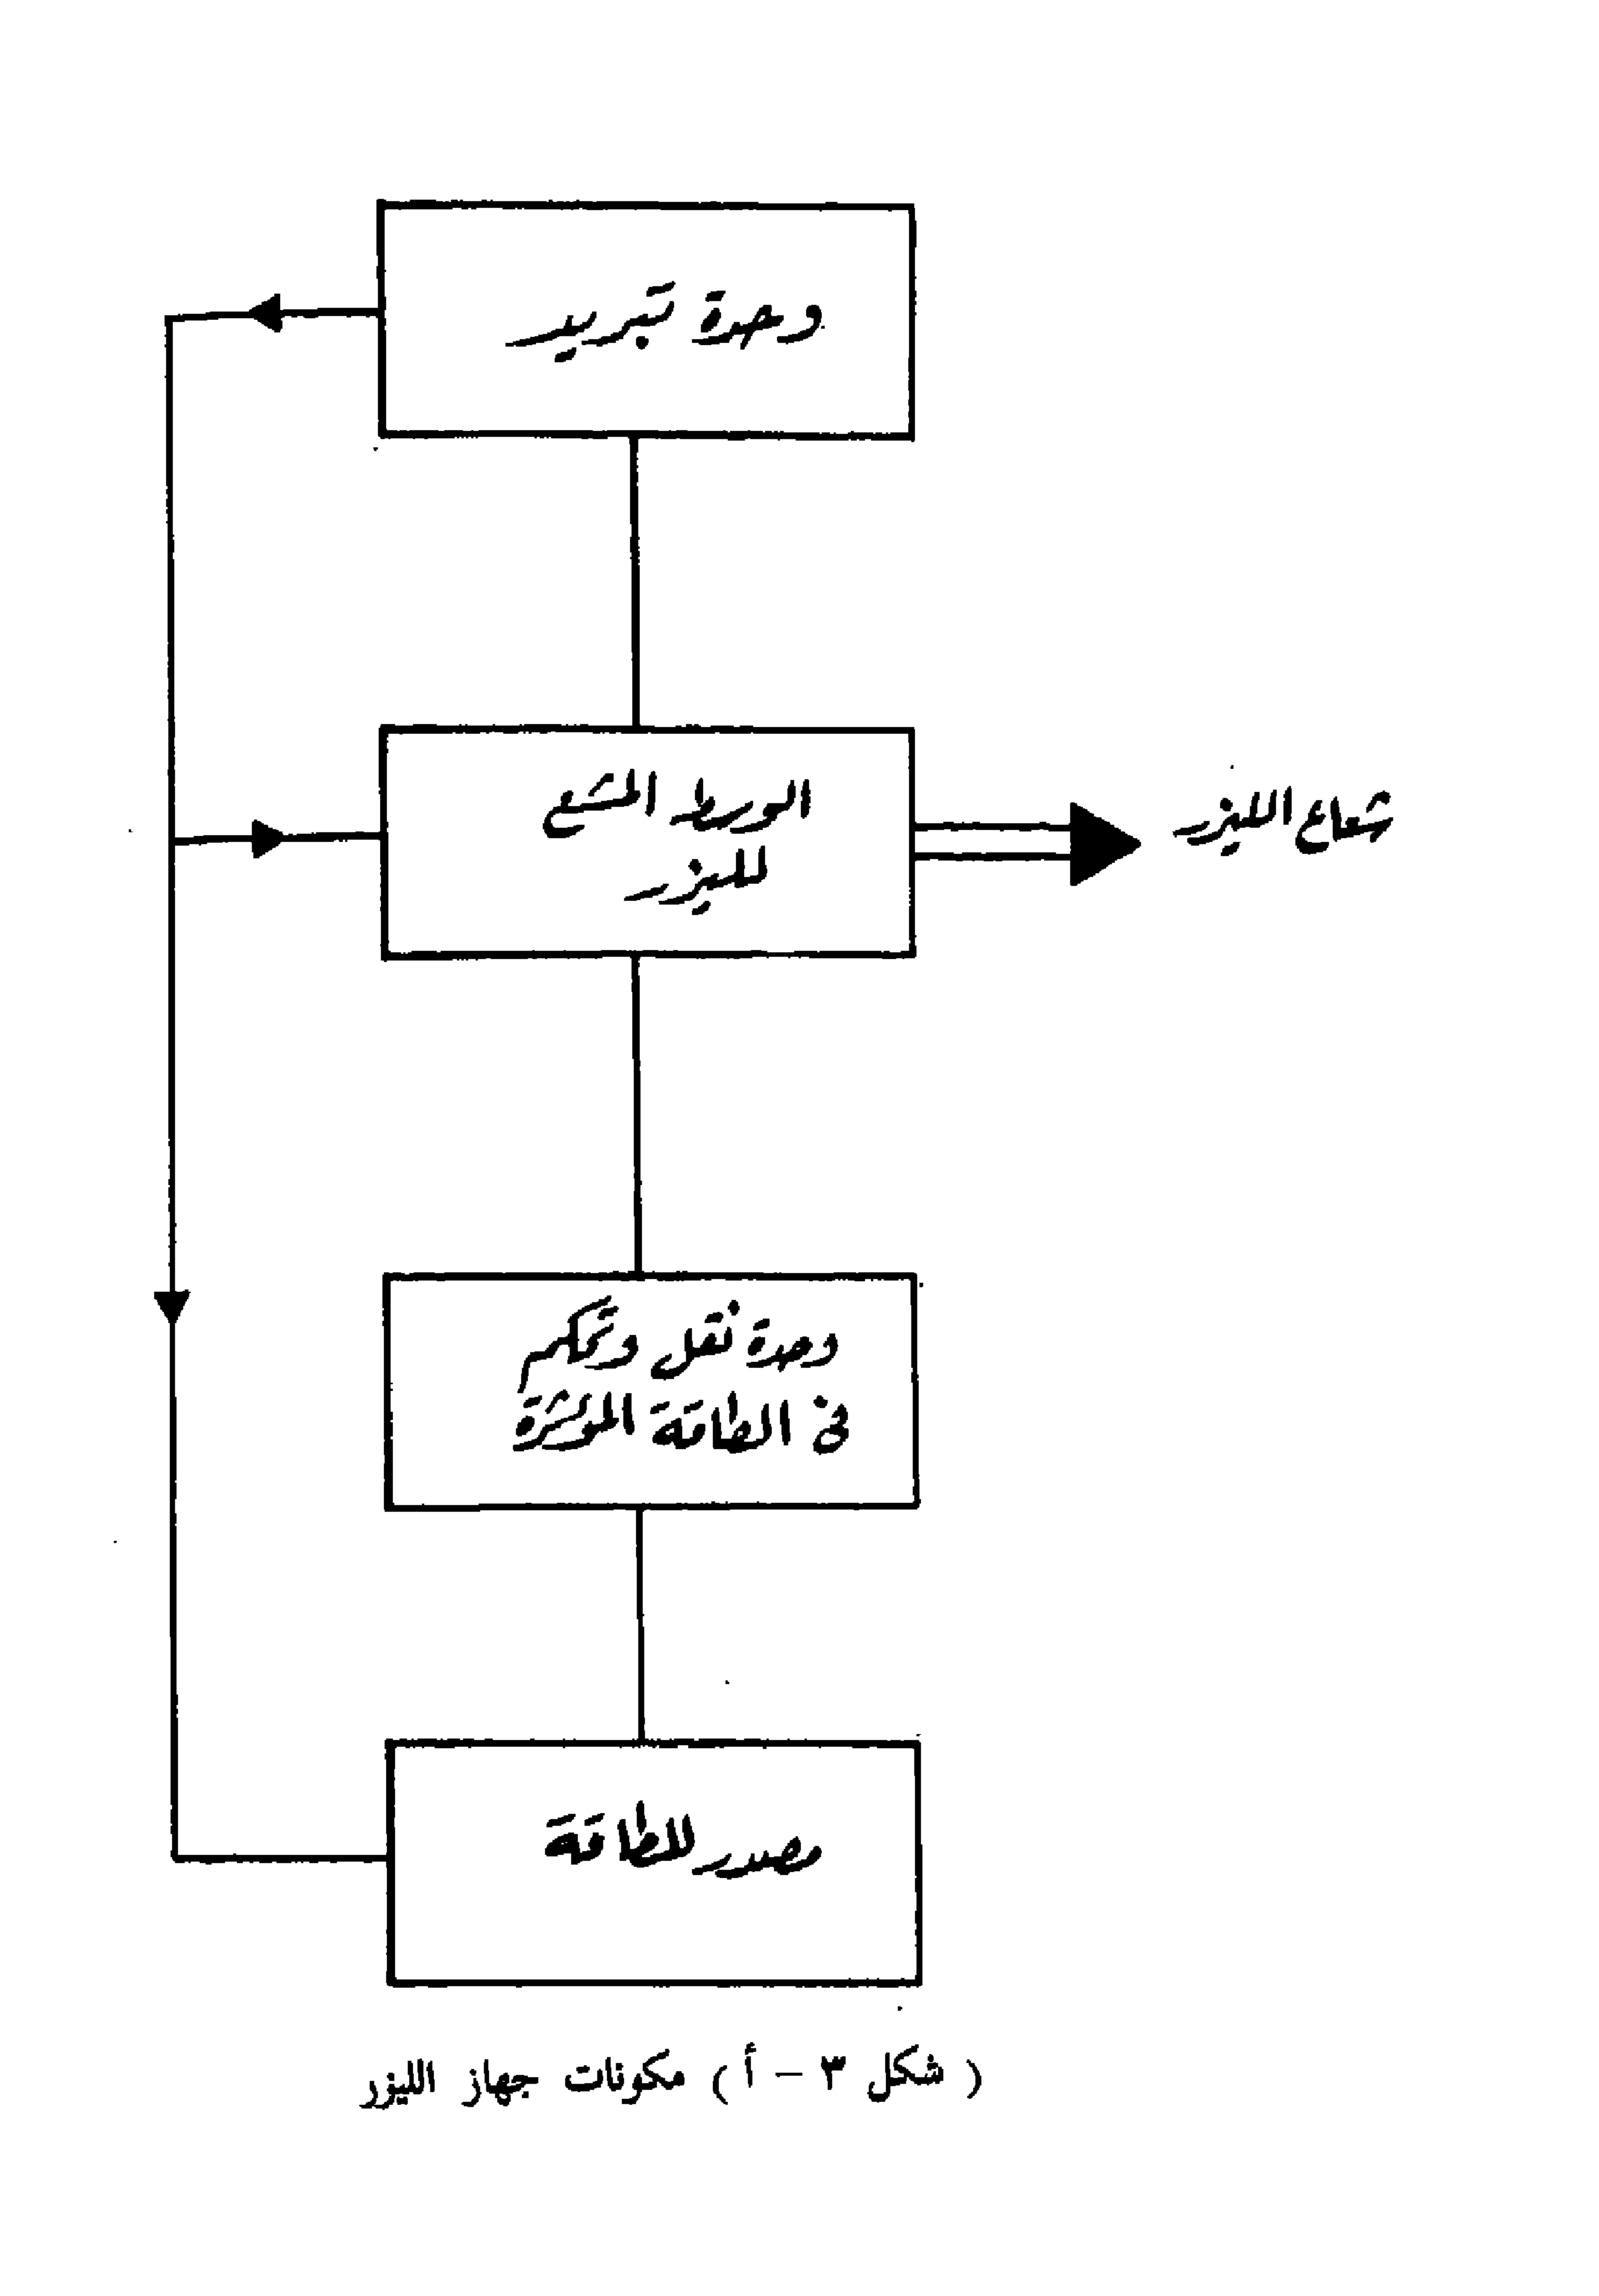 وحدة تبريد
الوسط المشع
لليزر
شعاع الليزر
وحدة نقل وتحكم
فى الطاقة المؤثرة
مصدر للطاقة
( شكل ٣ - أ ) مكونات جهاز الليزر